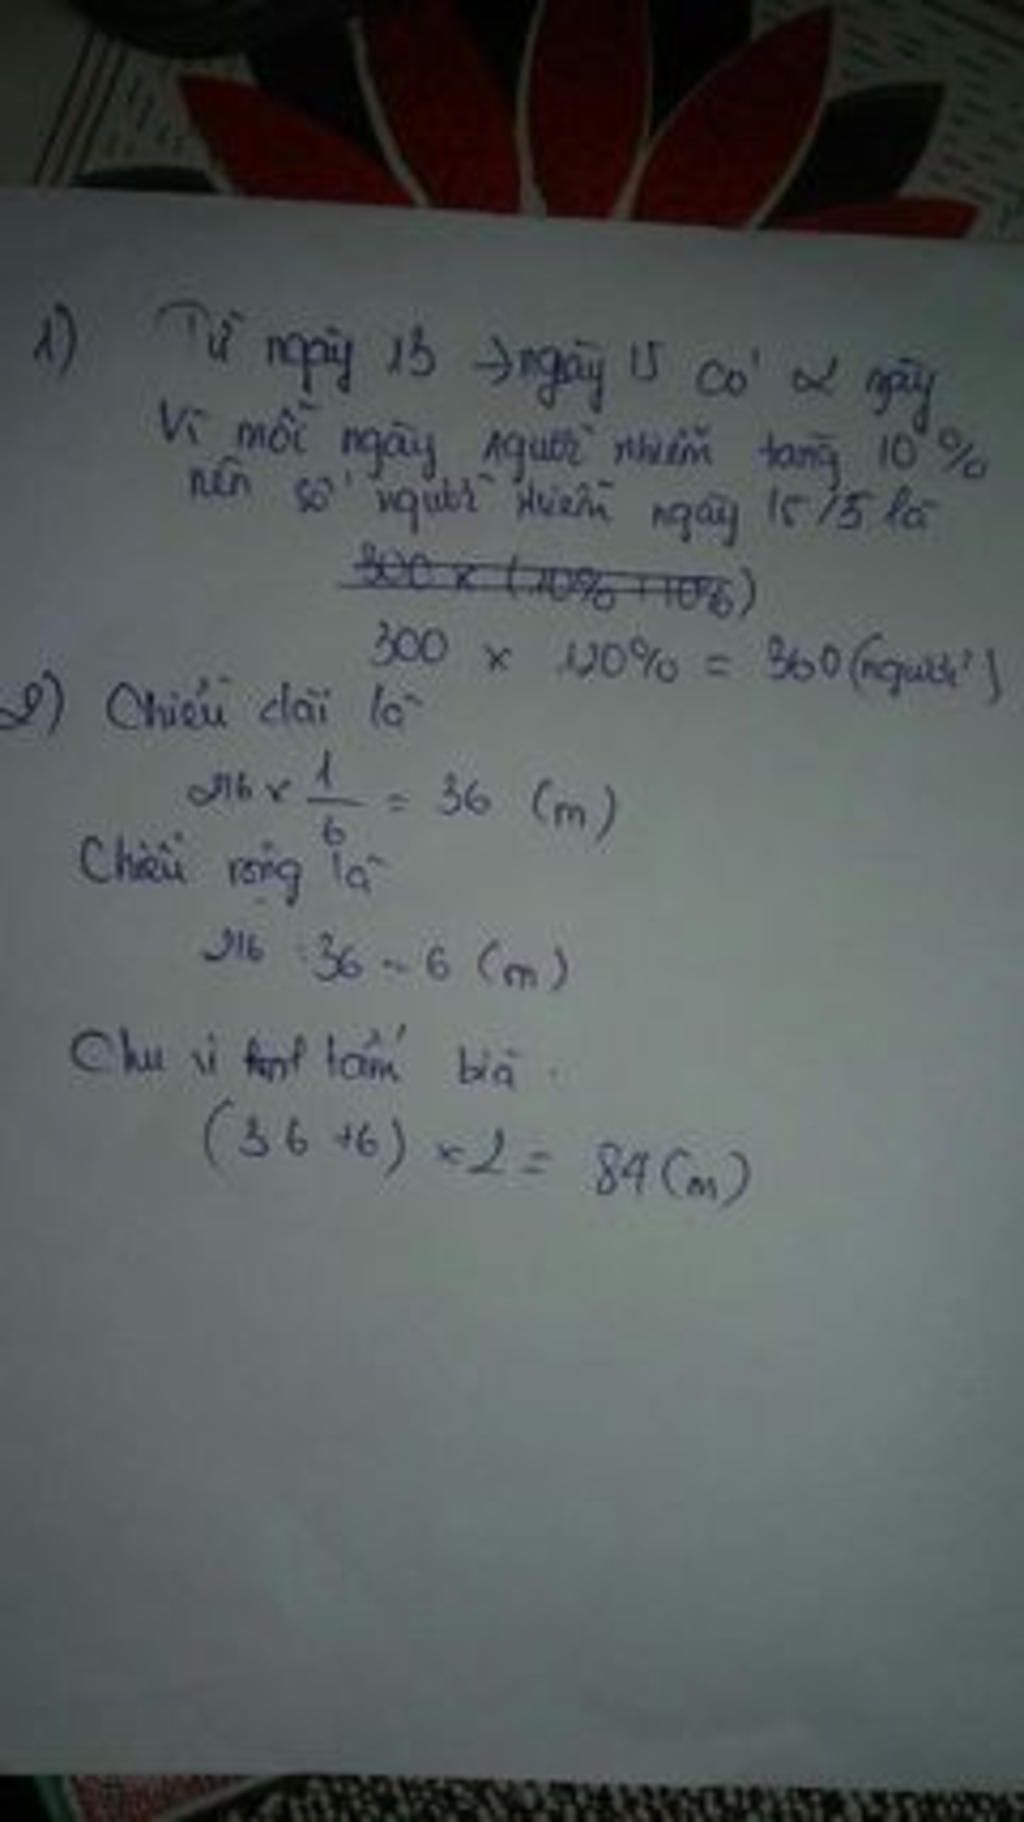 1) Từ ngày 13 → ngày 15 có 2 ngày
Vì mỗi ngày người nhiễm tăng 10%
nên số người nhiễm ngày 15/5 là
300 x (10% + 10%)
300 x 120% = 360 (người)
2) Chiều dài là
216 x 1/6 = 36 (m)
Chiều rộng là
216 : 36 = 6 (m)
Chu vi tấm bìa
(36 + 6) x 2 = 84 (m)